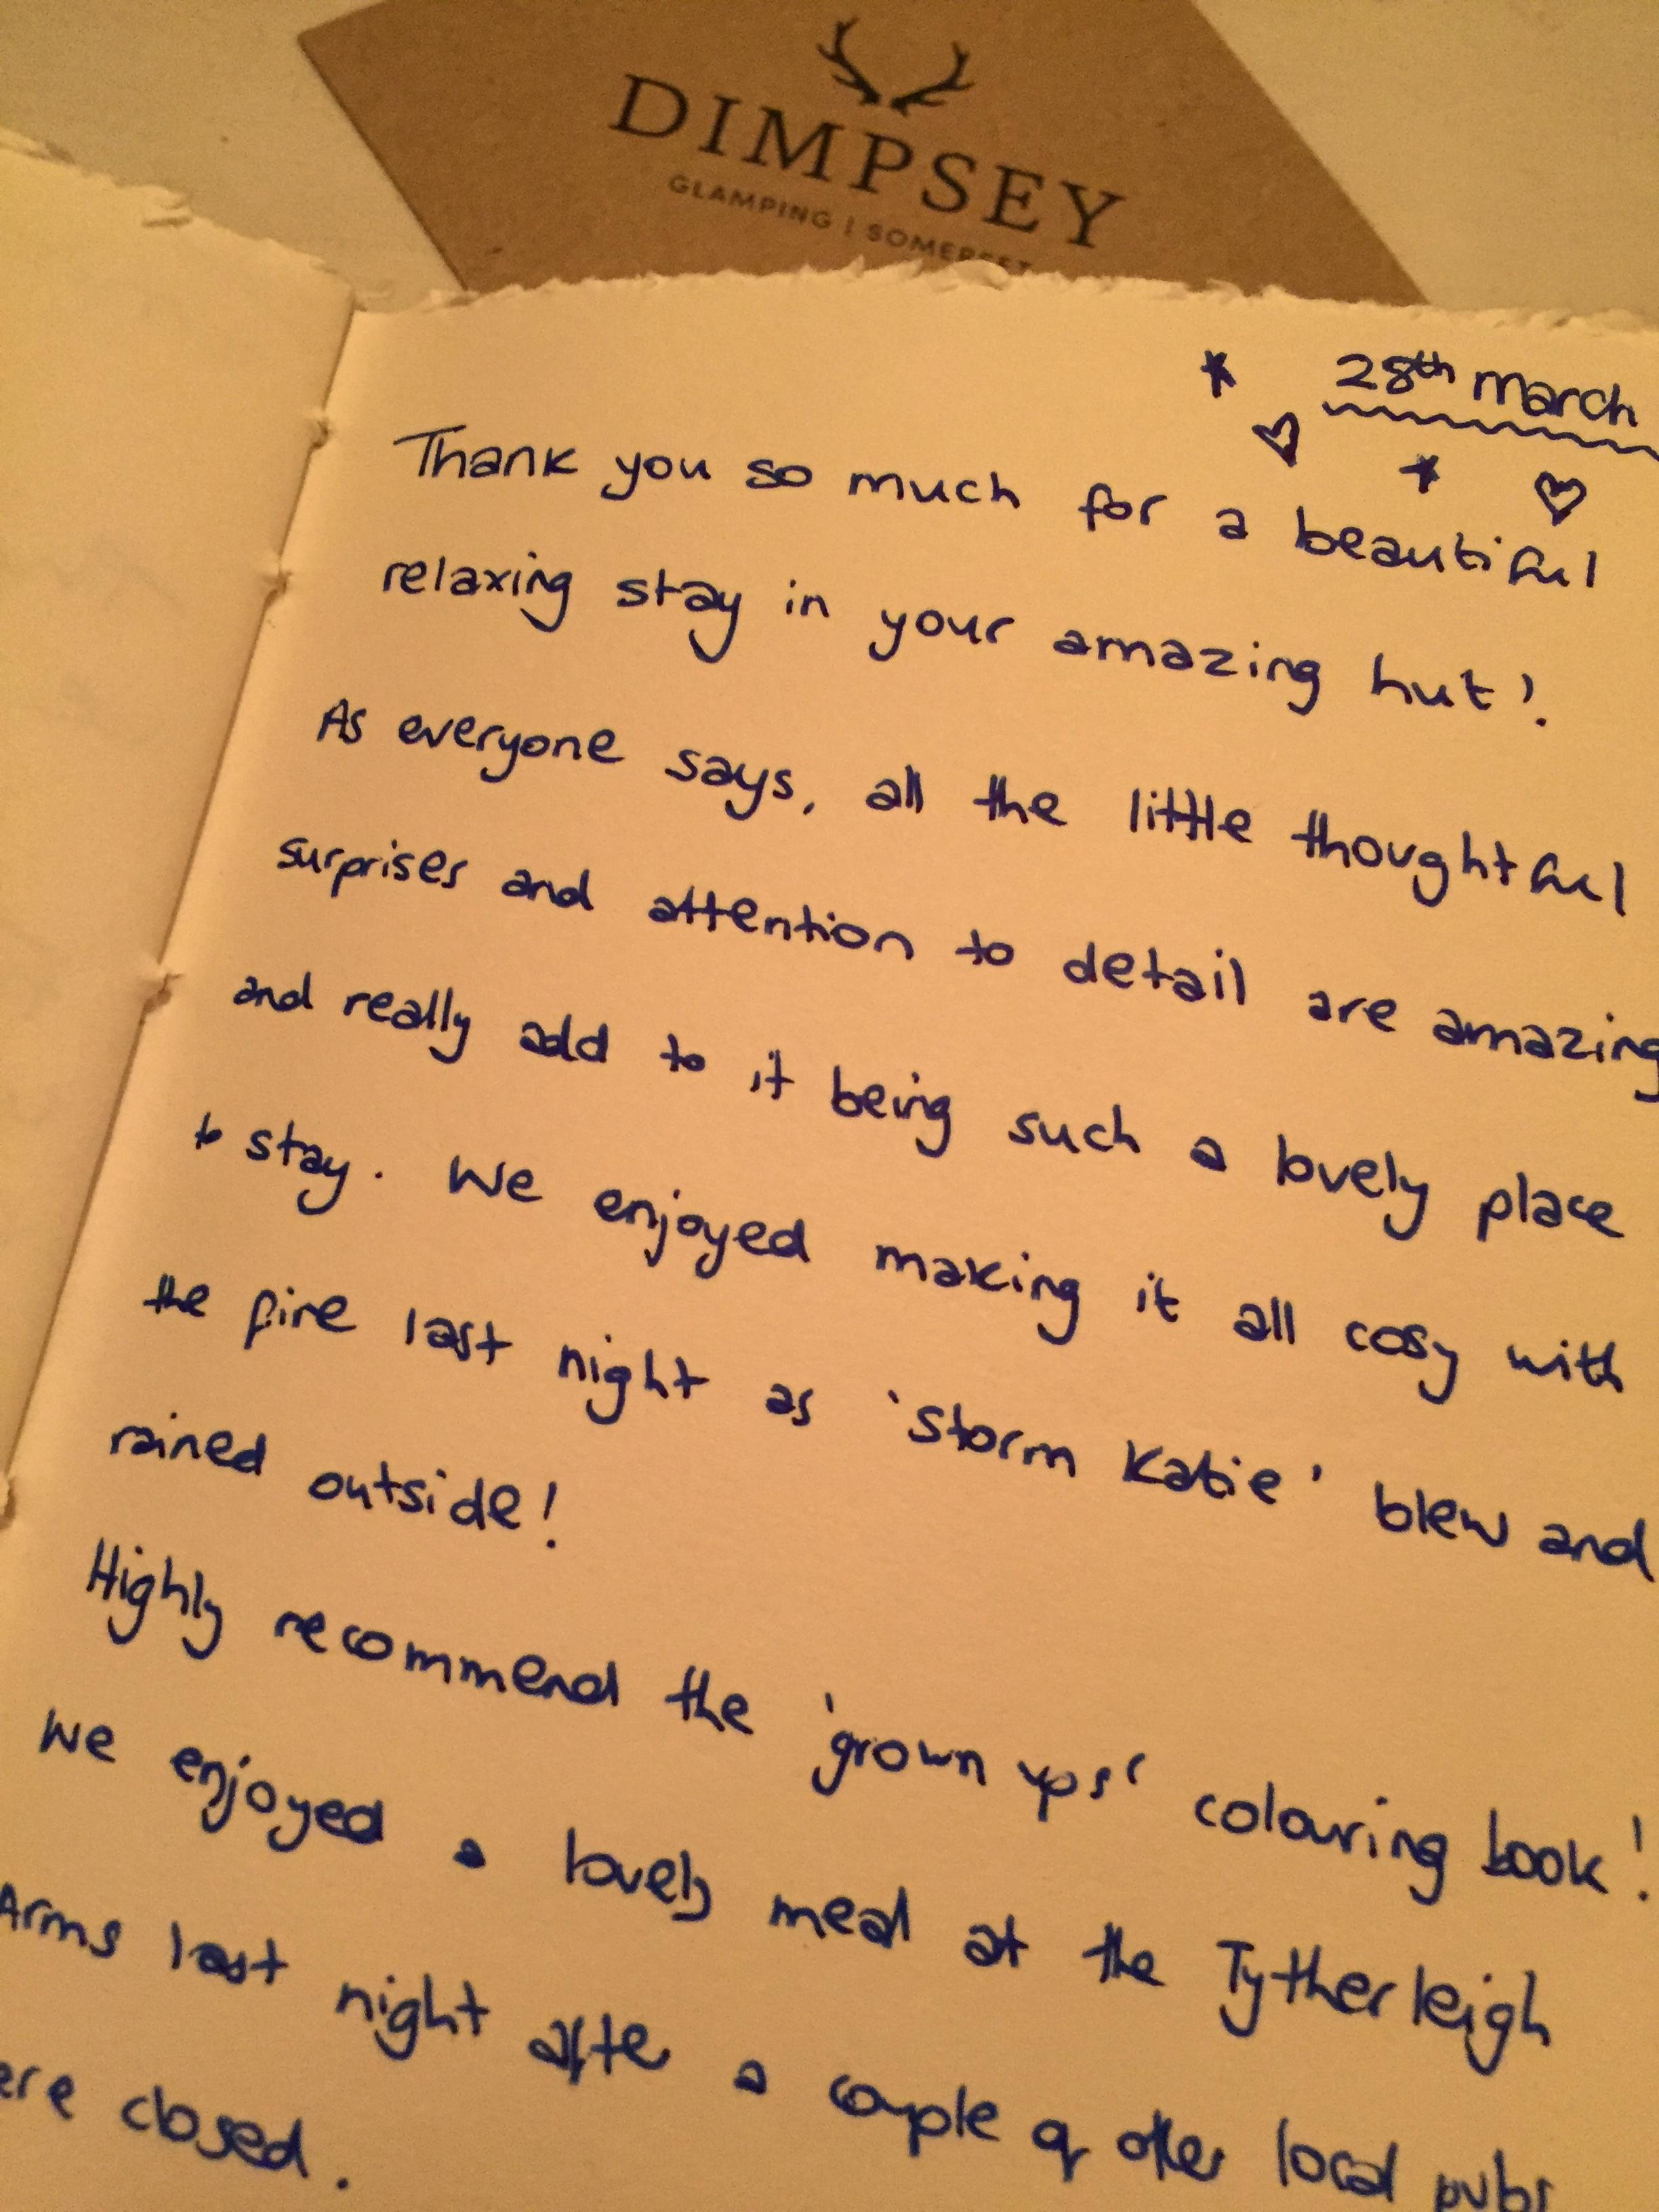 DIMPSEY
GLAMPING | SOMERSET
28th March
Thank you so much for a beautiful
relaxing stay in your amazing hut!
As everyone says, all the little thoughtful
surprises and attention to detail are amazing
and really add to it being such a lovely place
to stay. We enjoyed making it all cosy with
the fire last night as 'Storm Katie' blew and
rained outside!
Highly recommend the 'grown ups' colouring book!
We enjoyed a lovely meal at the Tytherleigh
Arms last night after a couple of other local pubs
ere closed.